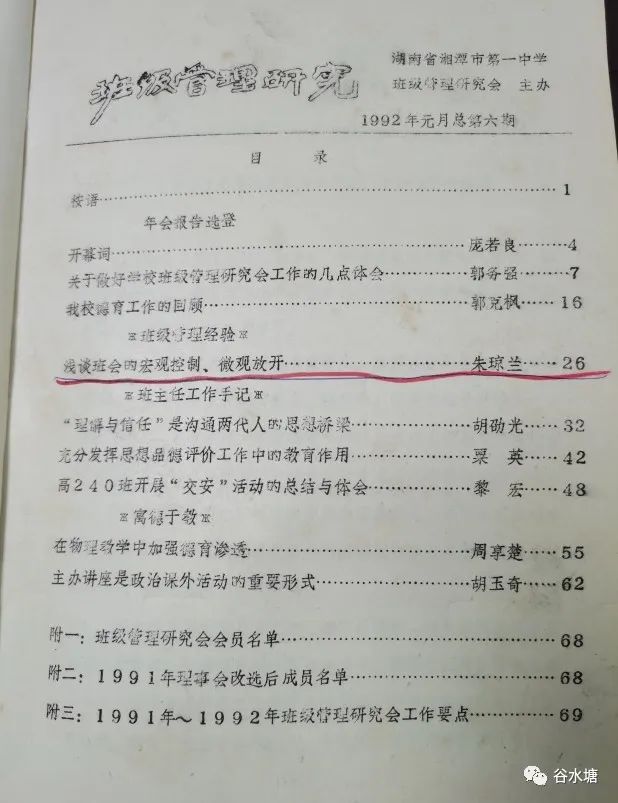 班级管理研究
湖南省湘潭市第一中学
班级管理研究会 主办
1992年元月总第六期
目 录
按语……1
年会报告选登
开幕词……庞若良……4
关于做好学校班级管理研究会工作的几点体会……郭务强……7
我校德育工作的回顾……郭克枫……16
※班级管理经验※
浅谈班会的宏观控制、微观放开……朱琼兰……26
※班主任工作手记※
“理解与信任”是沟通两代人的思想桥梁……胡劭光……32
充分发挥思想品德评价工作中的教育作用……粟 英……42
高240班开展“交安”活动的总结与体会……黎 宏……48
※寓德于教※
在物理教学中加强德育渗透……周享楚……55
主办讲座是政治课外活动的重要形式……胡玉奇……62
附一：班级管理研究会会员名单……68
附二：1991年理事会改选后成员名单……68
附三：1991年～1992年班级管理研究会工作要点……69
谷水塘